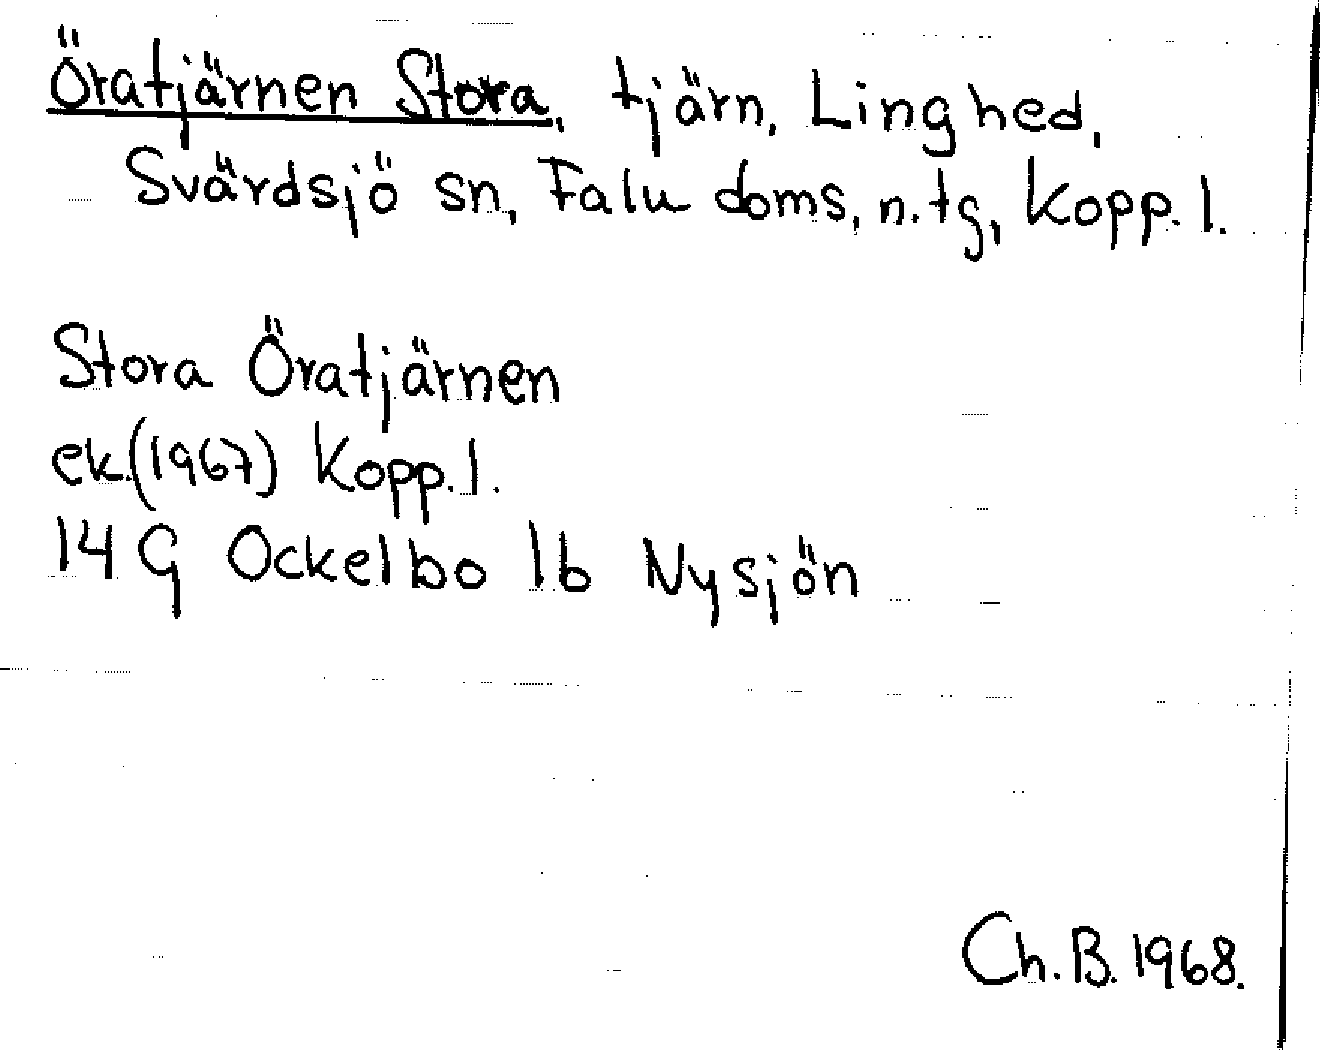 Öratjärnen Stora, tjärn, Linghed,
Svärdsjö sn, Falu doms, n. tg, Kopp. l.
Stora Öratjärnen
ek. (1967) Kopp. l.
14 G Ockelbo 1b Nysjön
Ch. B. 1968.